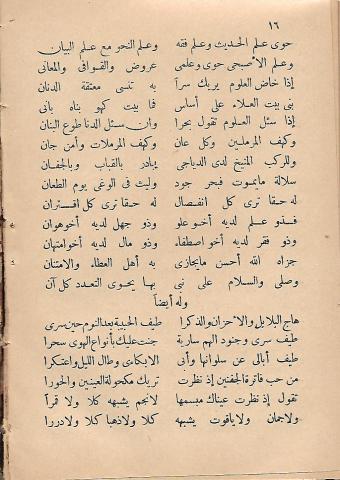 ١٦
حوى علم الحديث وعلم فقه وعلم النحو مع علم البيان
وعلم الأصبحى حوى وعلمى عروض والقوافى والمعانى
إذا خاض العلوم يريك سراً به تنسى معتقة الدنان
بنى بيت العلاء على أساس فما بيت كهو بناه بانى
إذا سئل العلوم تقول بحرا وان سئل الدنا طوع البنان
وكهف المرملين وكل عان وكهف المرملات وأمن جان
وللركب المنيخ لدى الدياجى يبادر بالقباب وبالجفان
سلالة مايموت فبحر جود وليث فى الوغى يوم الطعان
له حقا ترى كل انفصال له حقا ترى كل اقتران
فذو علم لديه أخو علو وذو جهل لديه أخوهوان
وذو فقر لديه أخو اصطفاء وذو مال لديه أخوامتهان
جزاه الله أحسن مايجازى به أهل العطاء والامتنان
وصلى والسلام على نبى بها يحوى التعدد كل آن
وله أيضاً
هاج البلابل والاحزان والذكرا طيف الحبيبة بعد النوم حين سرى
طيف سرى وجنود الهم سارية جنت عليك بأنواع الهوى سحرا
طيف أبالى عن سلوانها وأنى الابكارى وطال الليل واعتكرا
من حب فاترة الجفنين إذ نظرت تريك مكحولة العينين والحورا
تقول إذ نظرت عيناك مبسمها لانجم يشبهه كلا ولا قمراً
ولاجمان ولاياقوت يشبهه كلا ولاذهبا كلا ولادررا